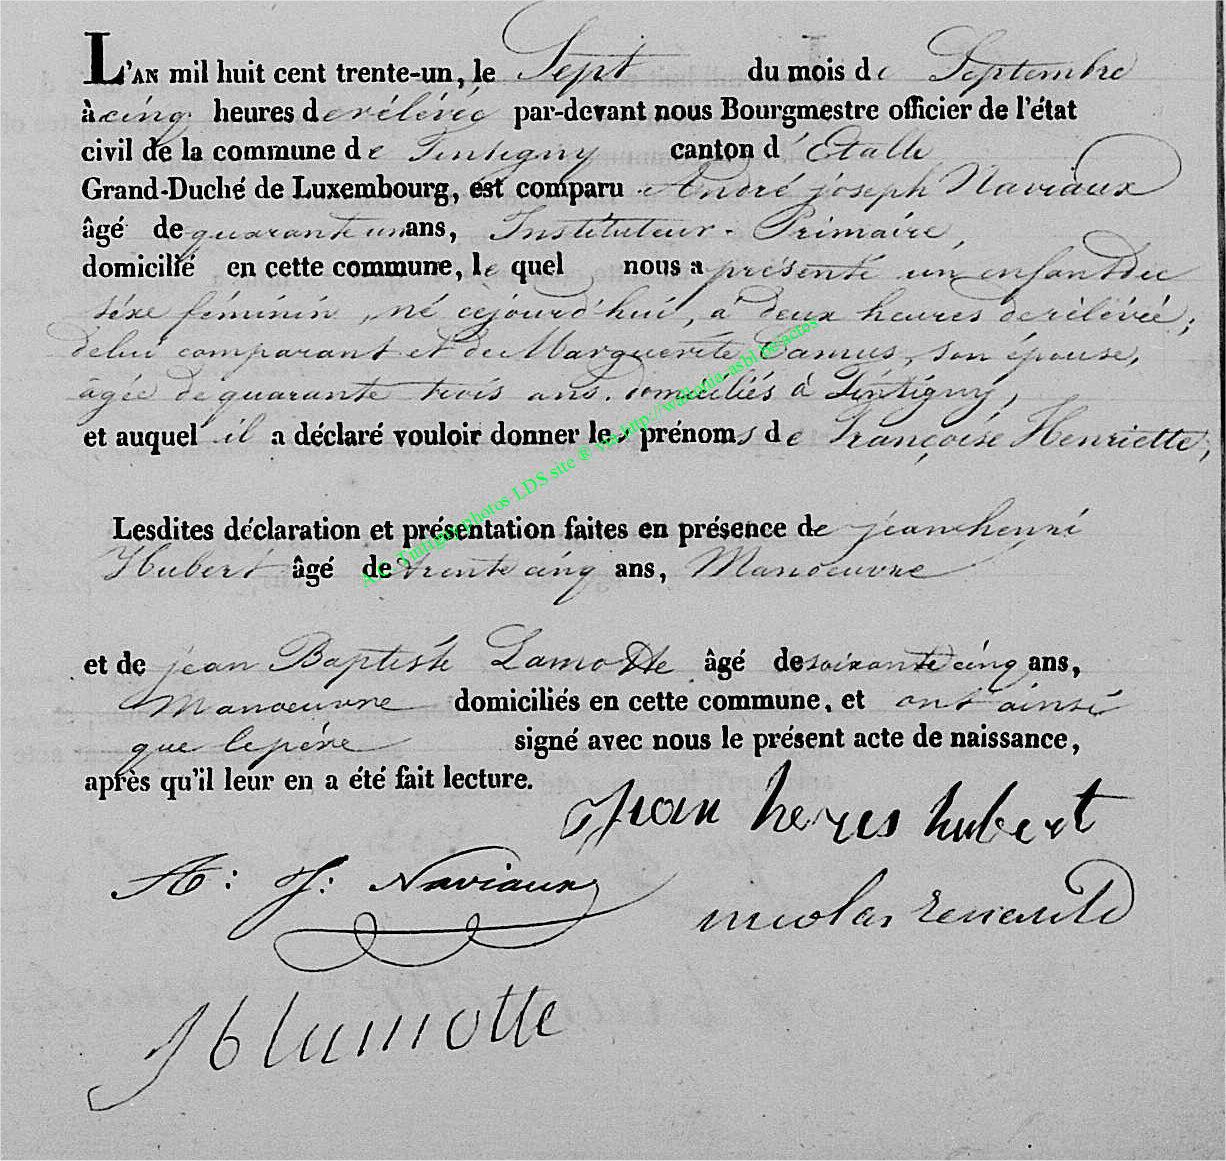 L'AN mil huit cent trente-un, le Sept du mois de Septembre
à cinq heures de rélévée par-devant nous Bourgmestre officier de l'état
civil de la commune de Tintigny canton d'Etalle
Grand-Duché de Luxembourg, est comparu André joseph Naviaux
âgé de quarante un ans, Instituteur Primaire,
domicilié en cette commune, le quel nous a présenté un enfant du
séxe féminin, né cejourd'hui, à deux heures de rélévée,
de lui comparant et de Marguerite Camus, son épouse,
âgée de quarante trois ans, domiciliés à Tintigny,
et auquel il a déclaré vouloir donner les prénoms de Françoise Henriette,
A.C. Tintigny photos LDS site ® via http://wallonia-asbl.be/actes
Lesdites déclaration et présentation faites en présence de jean henri
Hubert âgé de trente cinq ans, Manoeuvre
et de jean Baptiste Lamotte âgé de soixante cinq ans,
Manoeuvre domiciliés en cette commune, et ont ainsi
que le père signé avec nous le présent acte de naissance,
après qu'il leur en a été fait lecture.
jean henri hubert
A: J: Naviaux
nicolas renauld
J b lamotte